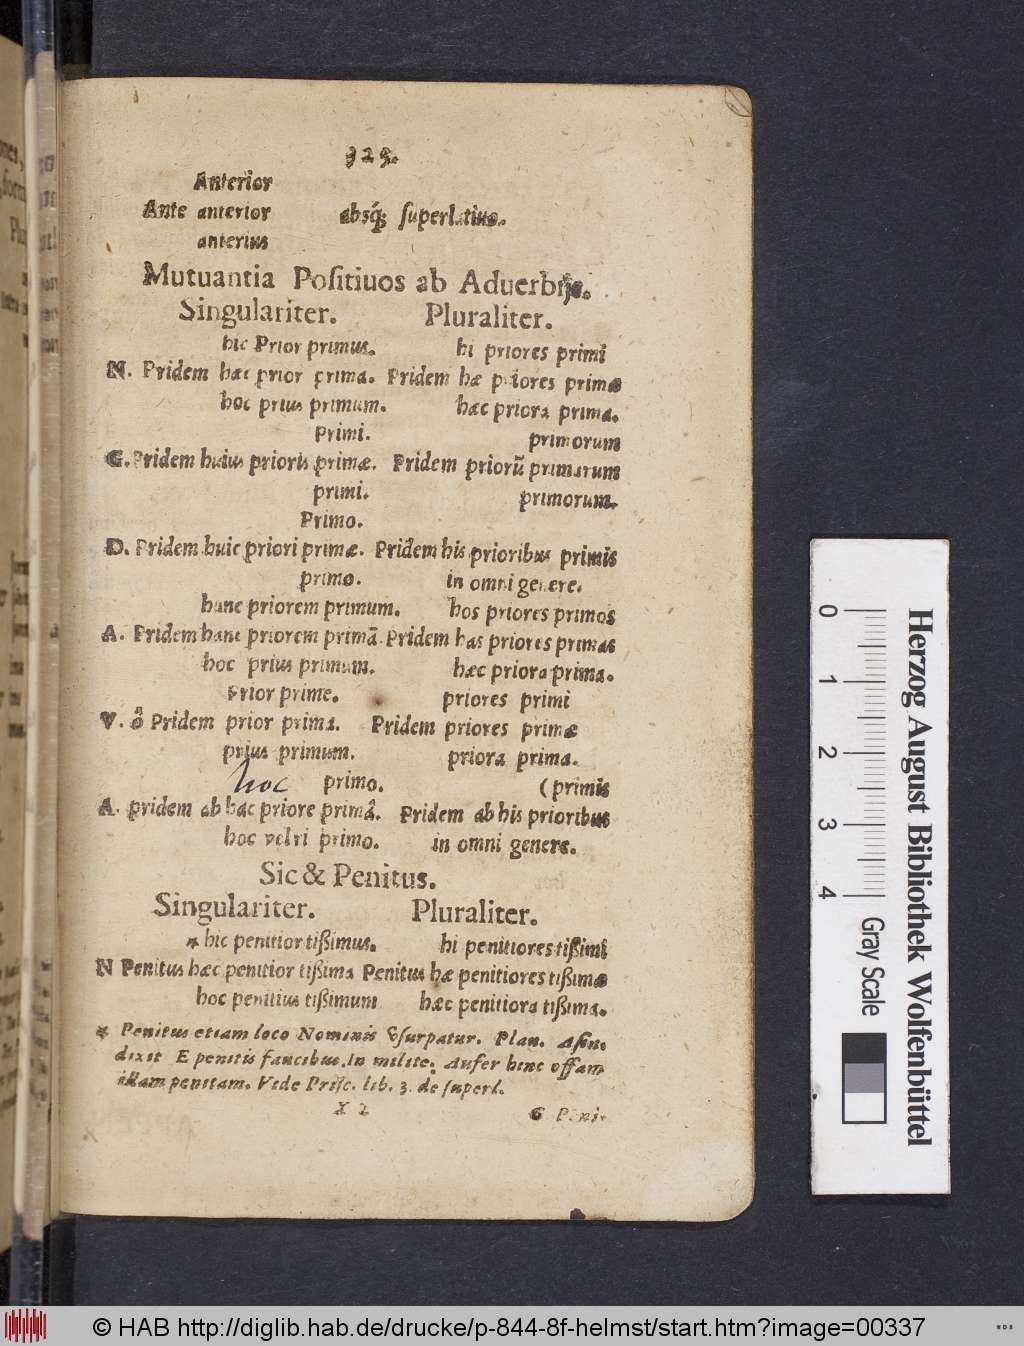 325.
Anterior
Ante anterior absq́; ſuperlatiuo.
anterius
Mutuantia Poſitiuos ab Aduerbijs.
Singulariter. Pluraliter.
hic Prior primus. hi priores primi
N. Pridem hæc prior prima. Pridem hæ priores primæ
hoc prius primum. hæc priora prima.
Primi. primorum
G. Pridem huius prioris primæ. Pridem priorū primarum
primi. primorum.
Primo.
D. Pridem huic priori primæ. Pridem his prioribus primis
primo. in omni genere.
hunc priorem primum. hos priores primos
A. Pridem hanc priorem primā. Pridem has priores primas
hoc prius primum. hæc priora prima.
Prior prime. priores primi
V. ô Pridem prior prima. Pridem priores primæ
prius primum. priora prima.
hoc primo. (primis
A. pridem ab hac priore primâ. Pridem ab his prioribus
hoc vel ri primo. in omni genere.
Sic & Penitus.
Singulariter. Pluraliter.
* hic penitior tißimus. hi penitiores tißimi
N Penitus hæc penitior tißima Penitus hæ penitiores tißimæ
hoc penitius tißimum hæc penitiora tißima.
* Penitus etiam loco Nominis vſurpatur. Plau. Aſin.
dixit E penitis faucibus. In milite. Aufer hinc offam
illam penitam. Vide Priſc. lib. 3. de ſuperl.
X 2 G Peni-
0 1 2 3 4
Herzog August Bibliothek Wolfenbüttel
Gray Scale
© HAB http://diglib.hab.de/drucke/p-844-8f-helmst/start.htm?image=00337